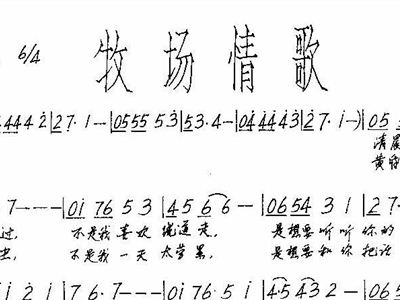 6/4 牧场情歌
444 4 2̇ | 2̇7· i - - | 0555 5 3̇ | 5̇3· 4 - | 04̇4̇4̇ 4̇3̇ | 2̇7· i - ) | 05
清晨
黄昏
7 - - - | 0i 76 5 3 | 45 6 6 - | 0654 3 1 | 27·
过， 不是我喜欢绕道走， 是想要听听你的
虫， 不是我一天太劳累， 是想要和你把话
i 2̇ | 76· 7 - - | i 7 6 5 - | 4543 2